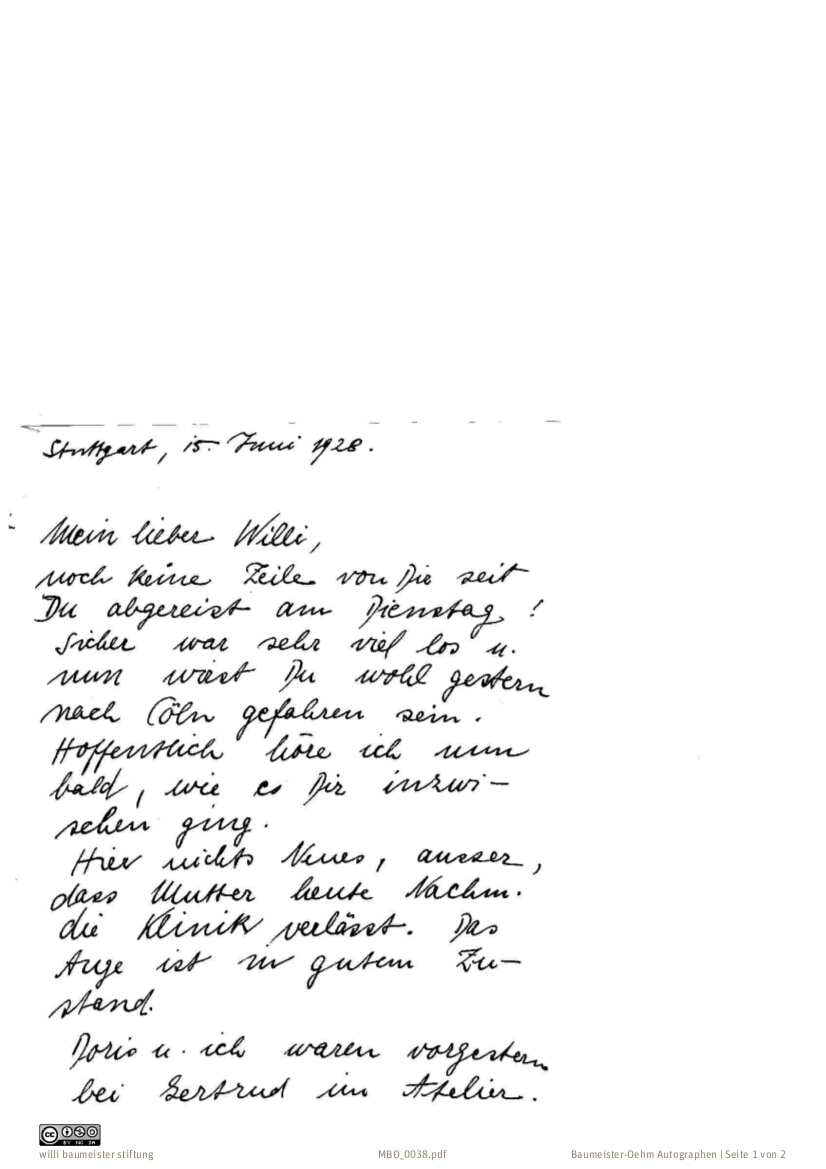 Stuttgart, 15. Juni 1928.
Mein lieber Willi,
noch keine Zeile von Dir seit
Du abgereist am Dienstag !
Sicher war sehr viel los u.
nun wirst Du wohl gestern
nach Cöln gefahren sein.
Hoffentlich höre ich nun
bald, wie es Dir inzwi-
schen ging.
Hier nichts Neues, ausser,
dass Mutter heute Nachm.
die Klinik verlässt. Das
Auge ist in gutem Zu-
stand.
Doris u. ich waren vorgestern
bei Gertrud im Atelier.
cc BY NC SA
willi baumeister stiftung MBO_0038.pdf Baumeister-Oehm Autographen | Seite 1 von 2